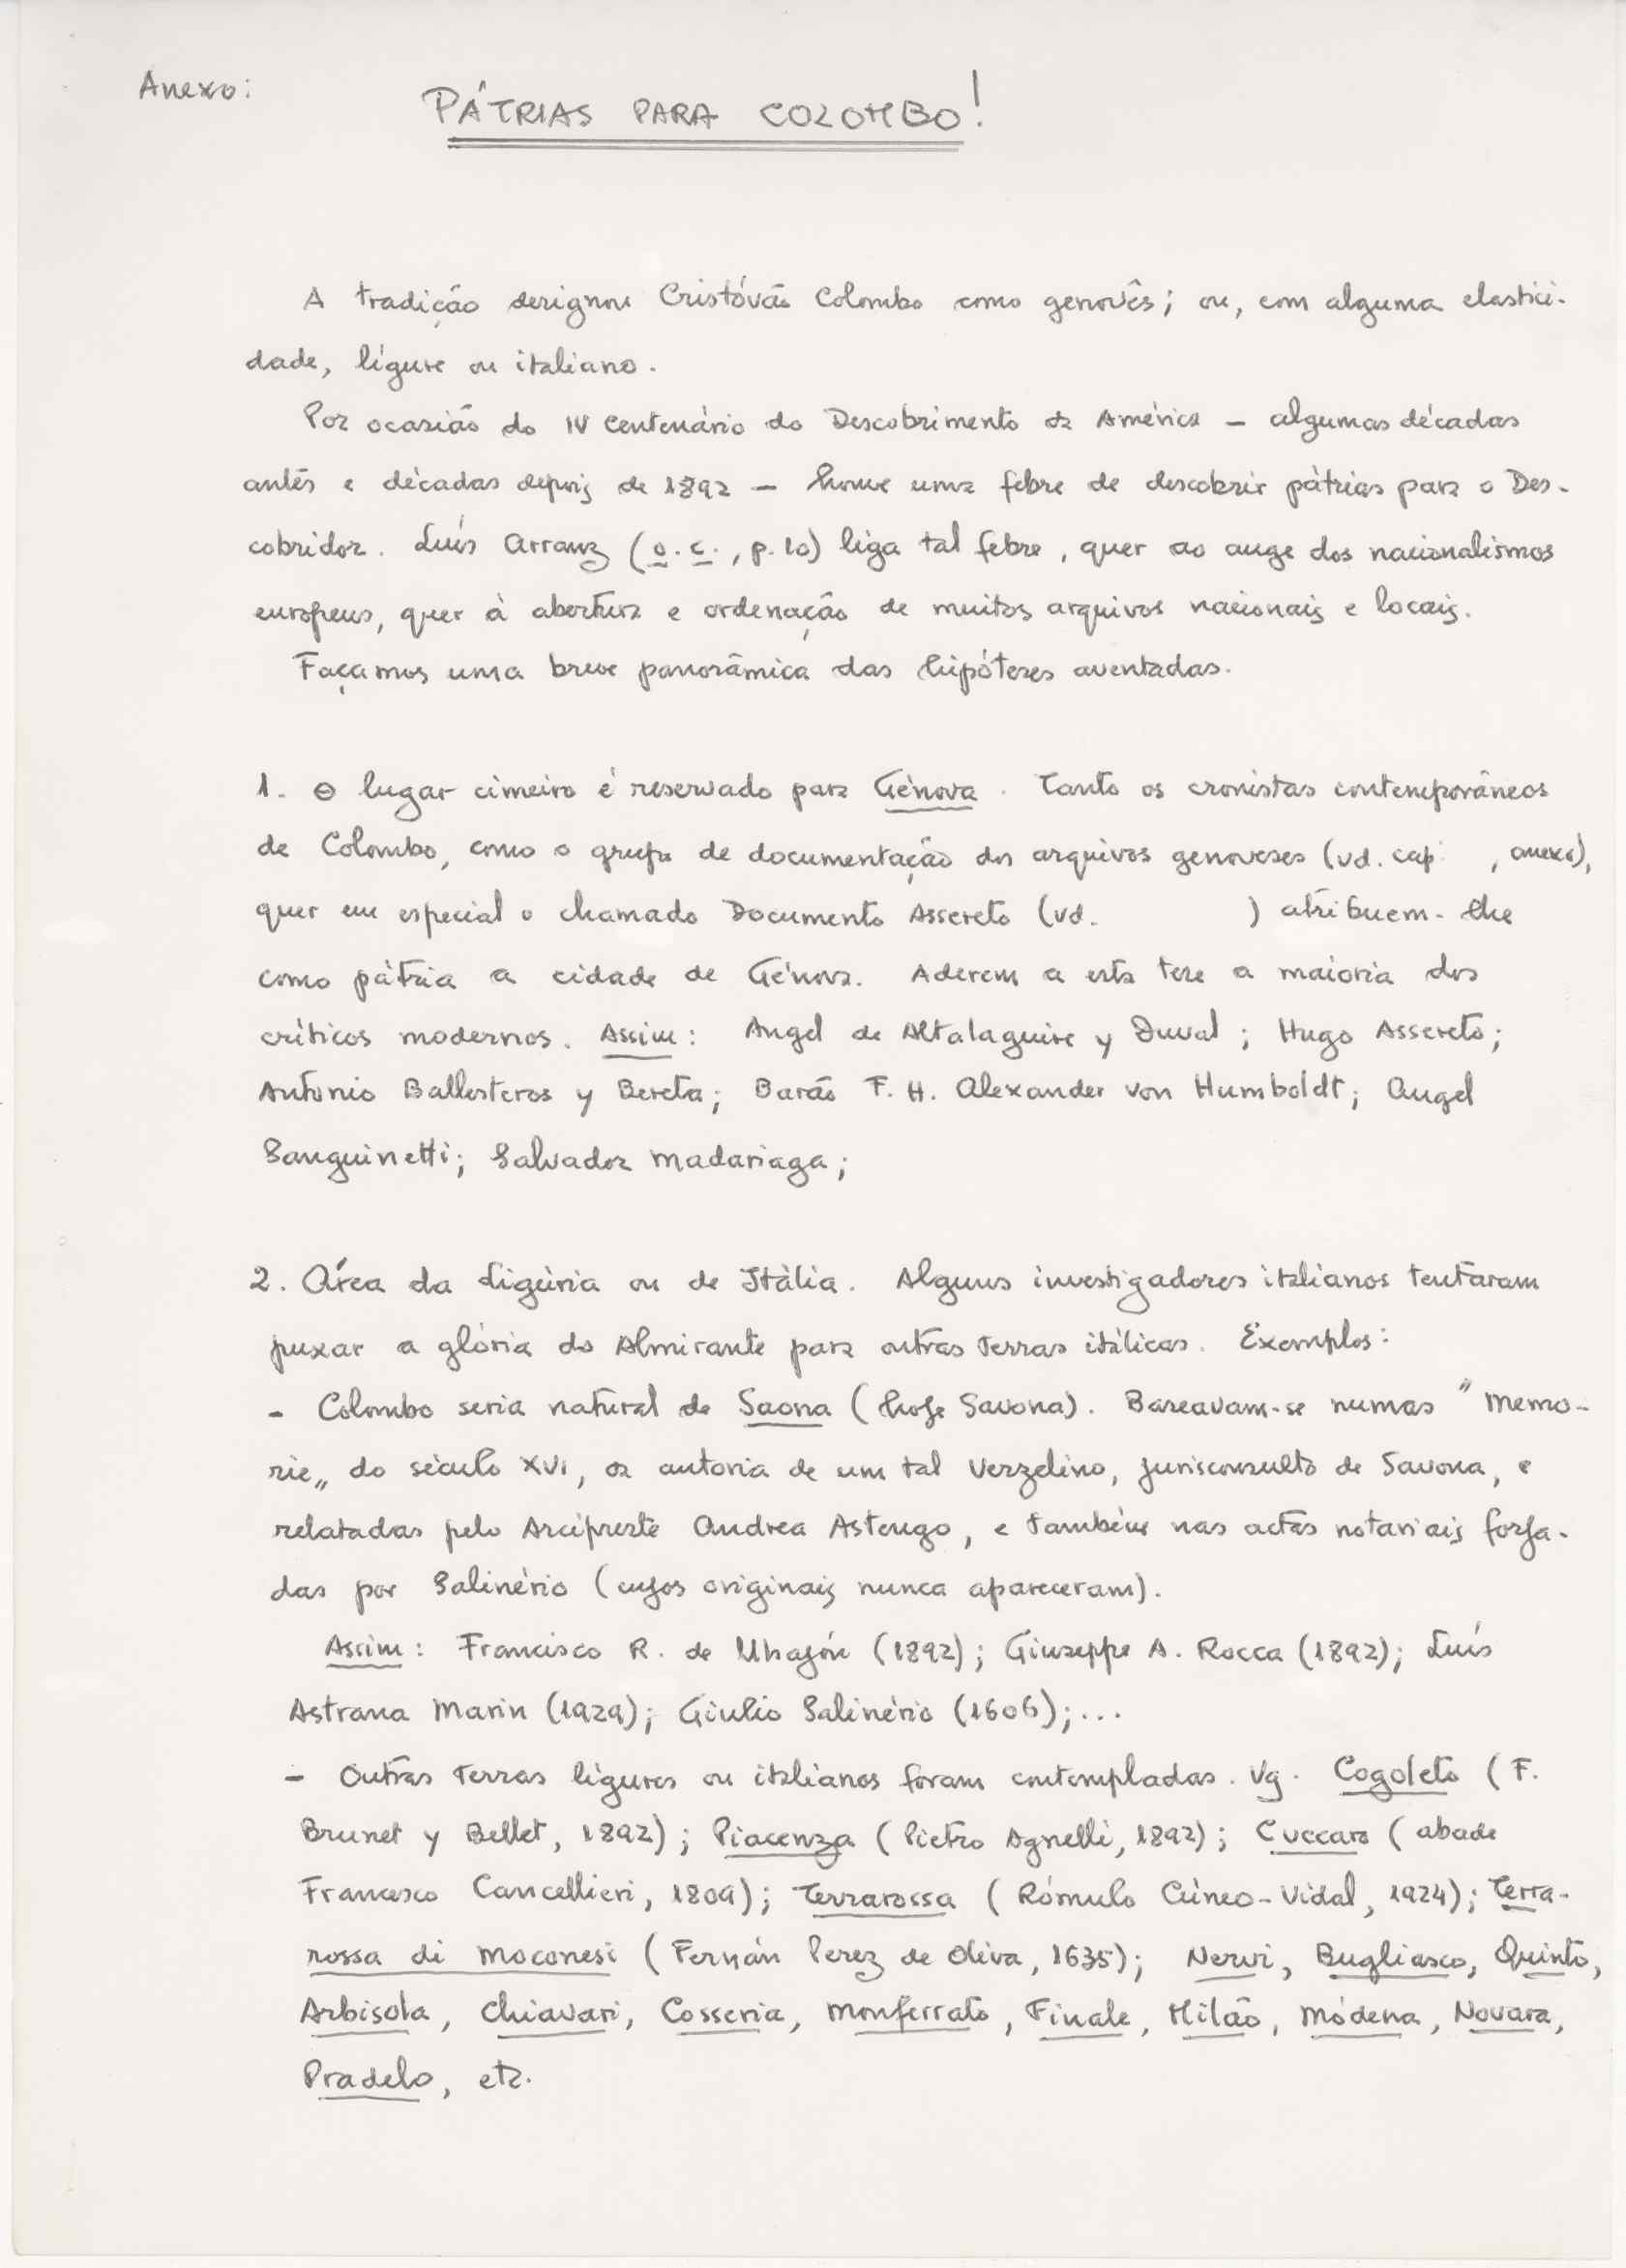 Anexo:
PÁTRIAS PARA COLOMBO!
A tradição designou Cristóvão Colombo como genovês; ou, com alguma elastici-
dade, lígure ou italiano.
Por ocasião do IV Centenário do Descobrimento da América – algumas décadas
antes e décadas depois de 1892 – houve uma febre de descobrir pátrias para o Des-
cobridor. Luís Arranz (o.c., p. 10) liga tal febre, quer ao auge dos nacionalismos
europeus, quer à abertura e ordenação de muitos arquivos nacionais e locais.
Façamos uma breve panorâmica das hipóteses aventadas.
1. O lugar cimeiro é reservado para Génova. Tanto os cronistas contemporâneos
de Colombo, como o grupo de documentação dos arquivos genoveses (vd. cap. , anexo),
quer em especial o chamado Documento Assereto (vd. ) atribuem-lhe
como pátria a cidade de Génova. Aderem a esta tese a maioria dos
críticos modernos. Assim: Angel de Altalaguire y Duval; Hugo Assereto;
Antonio Ballesteros y Bereta; Barão F. H. Alexander von Humboldt; Angel
Sanguinetti; Salvador Madariaga;
2. Área da Ligúria ou de Itália. Alguns investigadores italianos tentaram
puxar a glória do Almirante para outras terras itálicas. Exemplos:
- Colombo seria natural de Saona (hoje Savona). Baseavam-se numas "Memo-
rie" do século XVI, da autoria de um tal Verzelino, jurisconsulto de Savona, e
relatadas pelo Arcipreste Andrea Astengo, e também nas actas notariais forja-
das por Salinério (cujos originais nunca apareceram).
Assim: Francisco R. de Uhagón (1892); Giuseppe A. Rocca (1892); Luís
Astrana Marin (1929); Giulio Salinério (1606);...
- Outras terras lígures ou italianas foram contempladas. Vg. Cogoleto (F.
Brunet y Bellet, 1892); Piacenza (Pietro Agnelli, 1892); Cuccaro (abade
Francesco Cancellieri, 1809); Terrarossa (Rómulo Cúneo-Vidal, 1924); Terra-
rossa di Moconesi (Fernán Perez de Oliva, 1635); Nervi, Bugliasco, Quinto,
Arbisola, Chiavari, Cosseria, Monferrato, Finale, Milão, Módena, Novara,
Pradelo, etc.